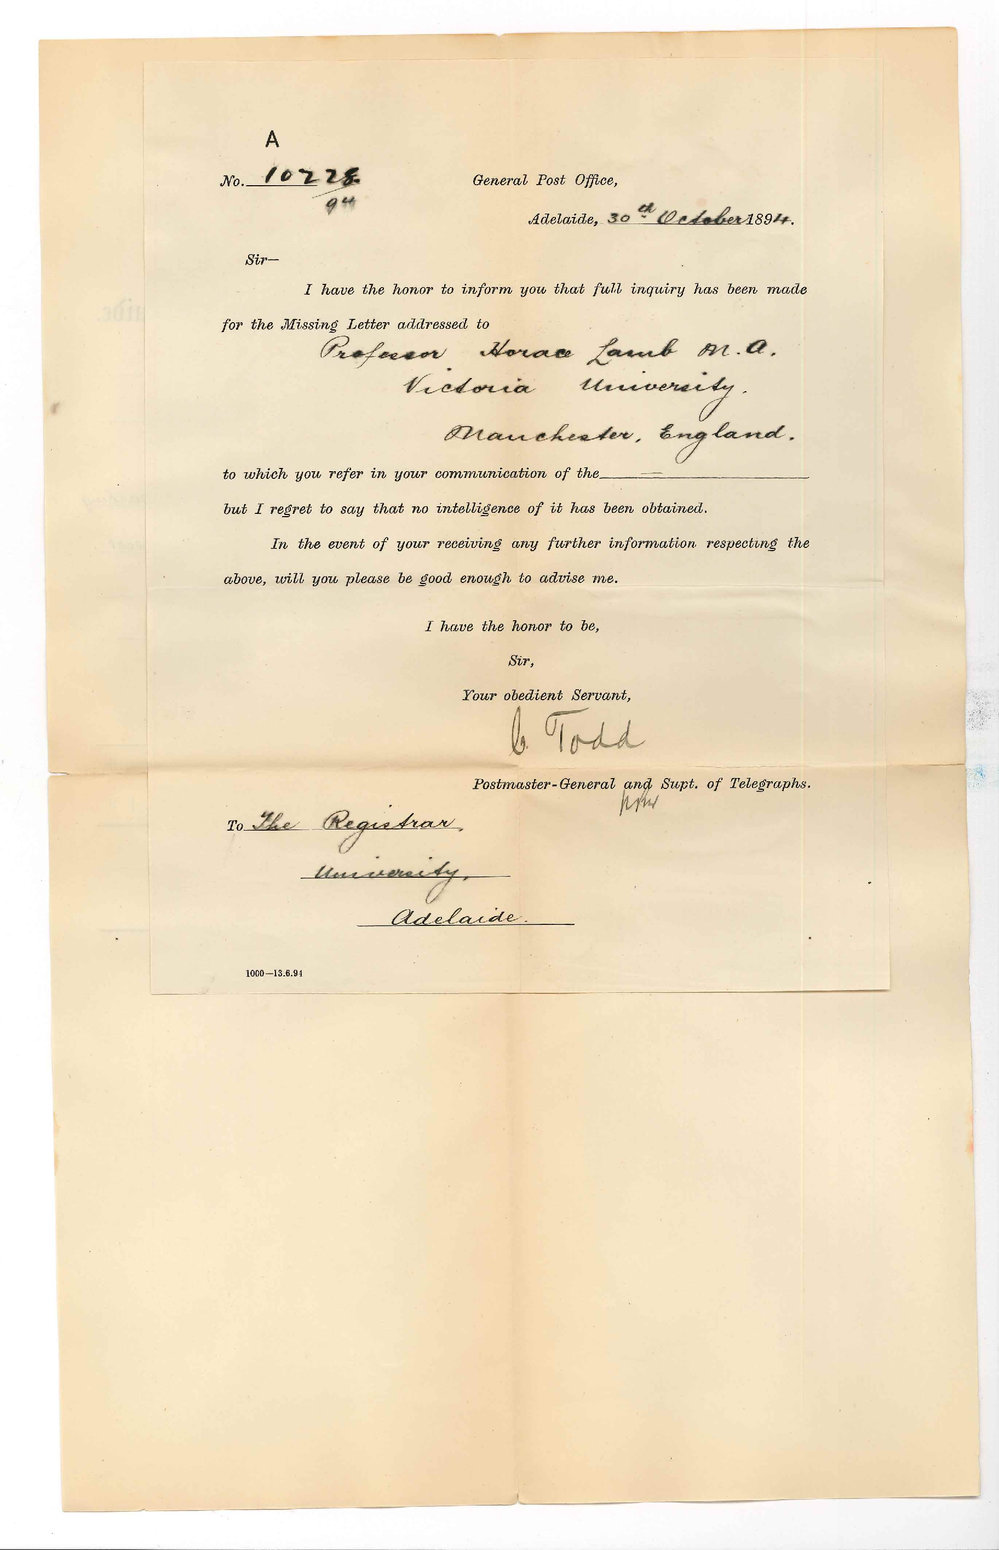 A
No. 10228
94
General Post Office,
Adelaide, 30th October 1894.
Sir—
I have the honor to inform you that full inquiry has been made
for the Missing Letter addressed to
Professor Horace Lamb M.A.
Victoria University.
Manchester, England.
to which you refer in your communication of the
but I regret to say that no intelligence of it has been obtained.
In the event of your receiving any further information respecting the
above, will you please be good enough to advise me.
I have the honor to be,
Sir,
Your obedient Servant,
C Todd
Postmaster-General and Supt. of Telegraphs.
To The Registrar,
University,
Adelaide.
1000—13.6.94